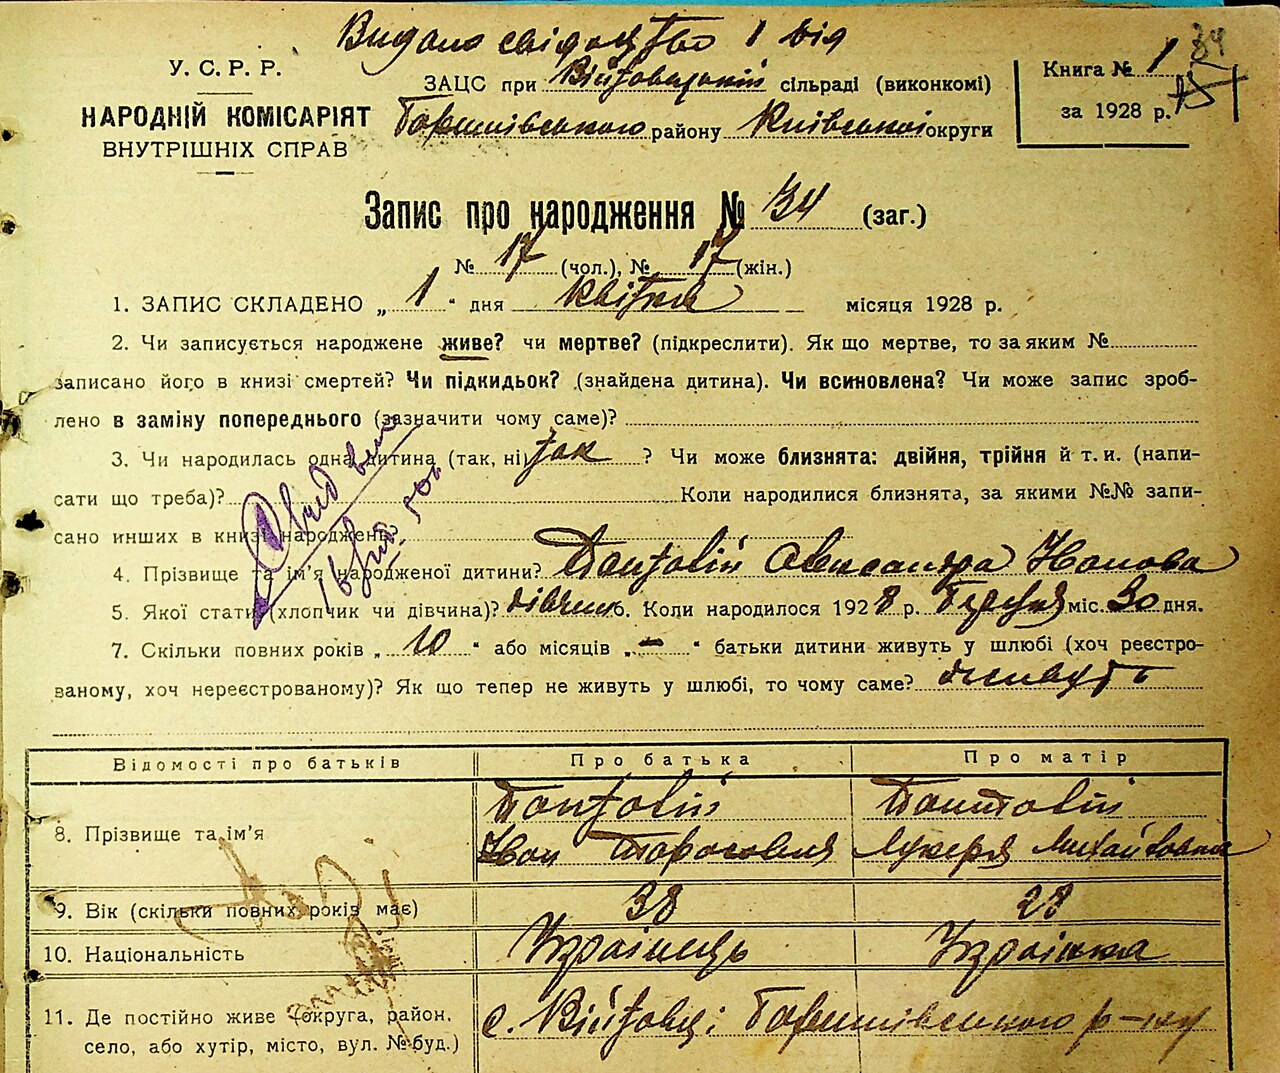 Видано свідоцтво 1 від
34
У. С. Р. Р.
НАРОДНІЙ КОМІСАРІЯТ
ВНУТРІШНІХ СПРАВ
ЗАЦС при Війтовецькій сільраді (виконкомі)
Баришівського району Київської округи
Книга № 1
за 1928 р.
Запис про народження № 34 (заг.)
№ 17 (чол.), № 17 (жін.)
1. ЗАПИС СКЛАДЕНО „ 1 " дня квітня місяця 1928 р.
2. Чи записується народжене живе? чи мертве? (підкреслити). Як що мертве, то за яким №
записано його в книзі смертей? Чи підкидьок? (знайдена дитина). Чи всиновлена? Чи може запис зроб-
лено в заміну попереднього (зазначити чому саме)?
3. Чи народилась одна дитина (так, ні) так ? Чи може близнята: двійня, трійня й т. и. (напи-
сати що треба)? Коли народилися близнята, за якими №№ запи-
сано инших в книзі народжень?
4. Прізвище та ім'я народженої дитини? Олександра Іванова
5. Якої статі (хлопчик чи дівчина)? дівчина 6. Коли народилося 1928 р. Березня міс. 30 дня.
7. Скільки повних років „ 10 " або місяців „ — " батьки дитини живуть у шлюбі (хоч реєстро-
ваному, хоч нереєстрованому)? Як що тепер не живуть у шлюбі, то чому саме? живуть
Відомості про батьків Про батька Про матір
8. Прізвище та ім'я
Іван Тарасович Лукеря Михайловна
9. Вік (скільки повних років має) 38 28
10. Національність Українець Українка
11. Де постійно живе (округа, район, с. Війтовці Баришівського р-ну
село, або хутір, місто, вул. № буд.)